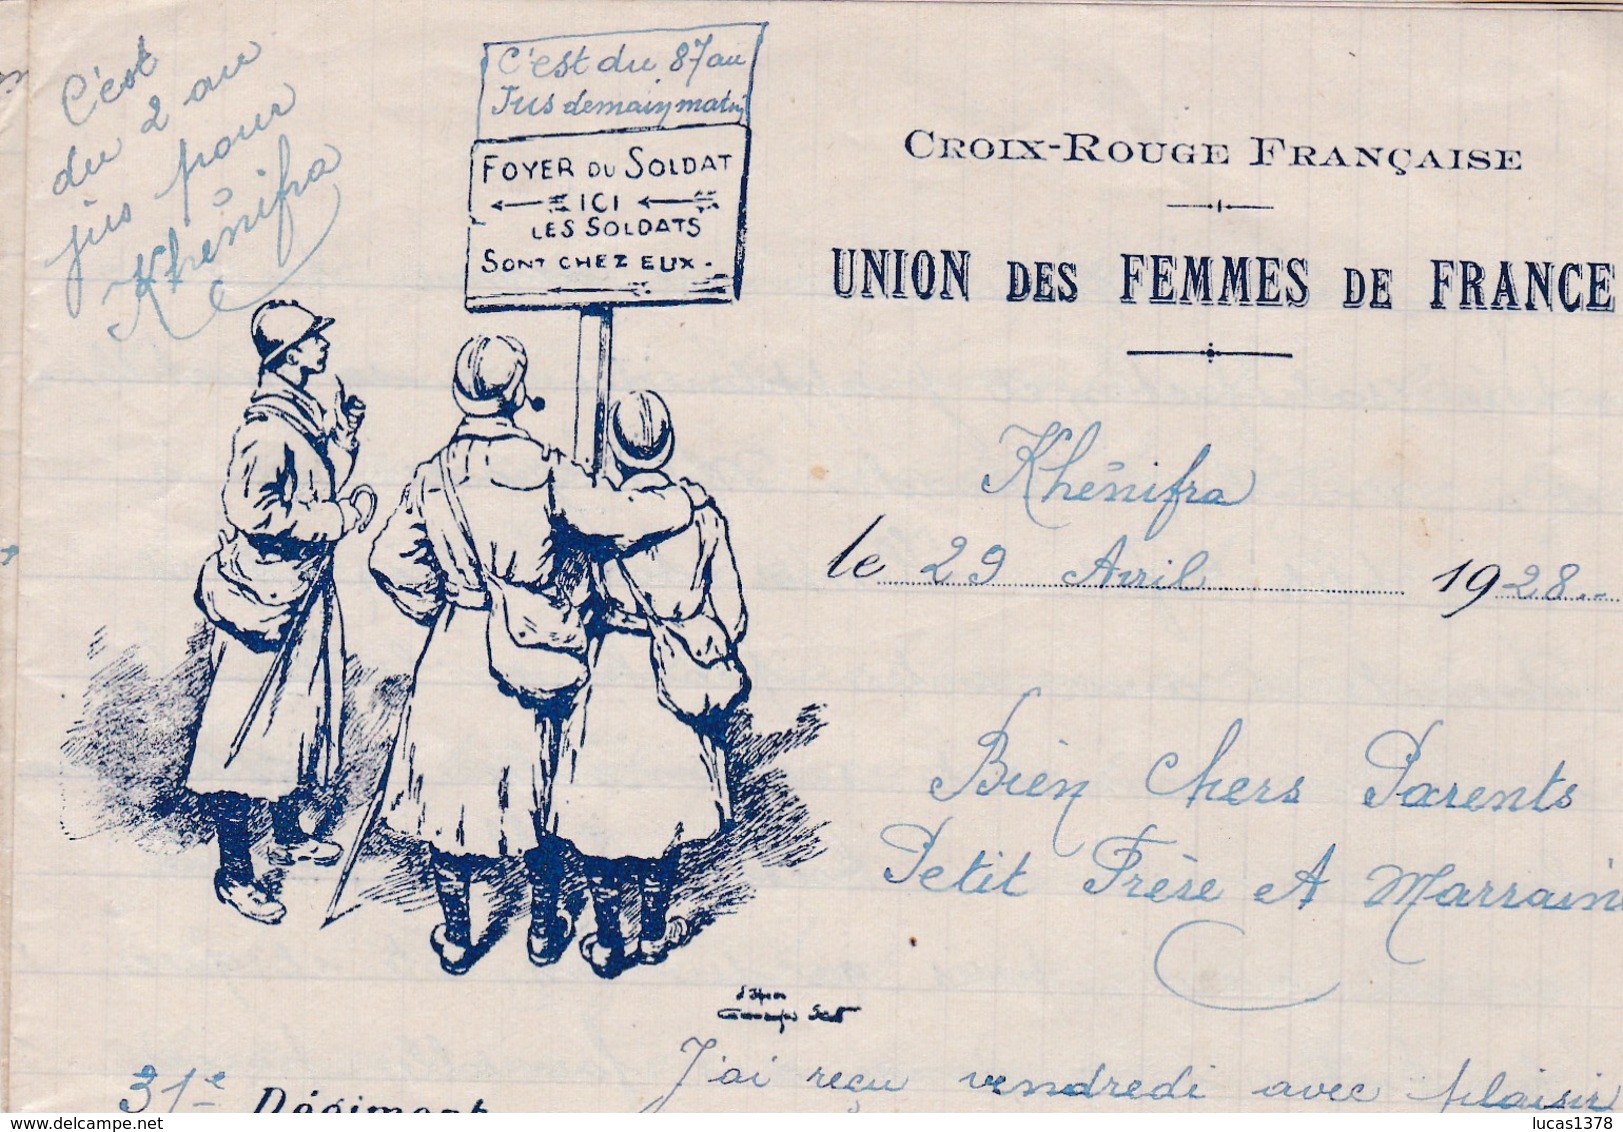 C'est
du 2 au
jus pour
Khénifra
C'est du 87 au
Jus demain matin
FOYER DU SOLDAT
ICI
LES SOLDATS
SONT CHEZ EUX.
CROIX-ROUGE FRANÇAISE
UNION DES FEMMES DE FRANCE
Khénifra
le 29 Avril 1928..
Bien Chers Parents
Petit Frère et Marraine
J'ai reçu vendredi avec plaisir
31e Régiment
delcampe.net
lucas1378